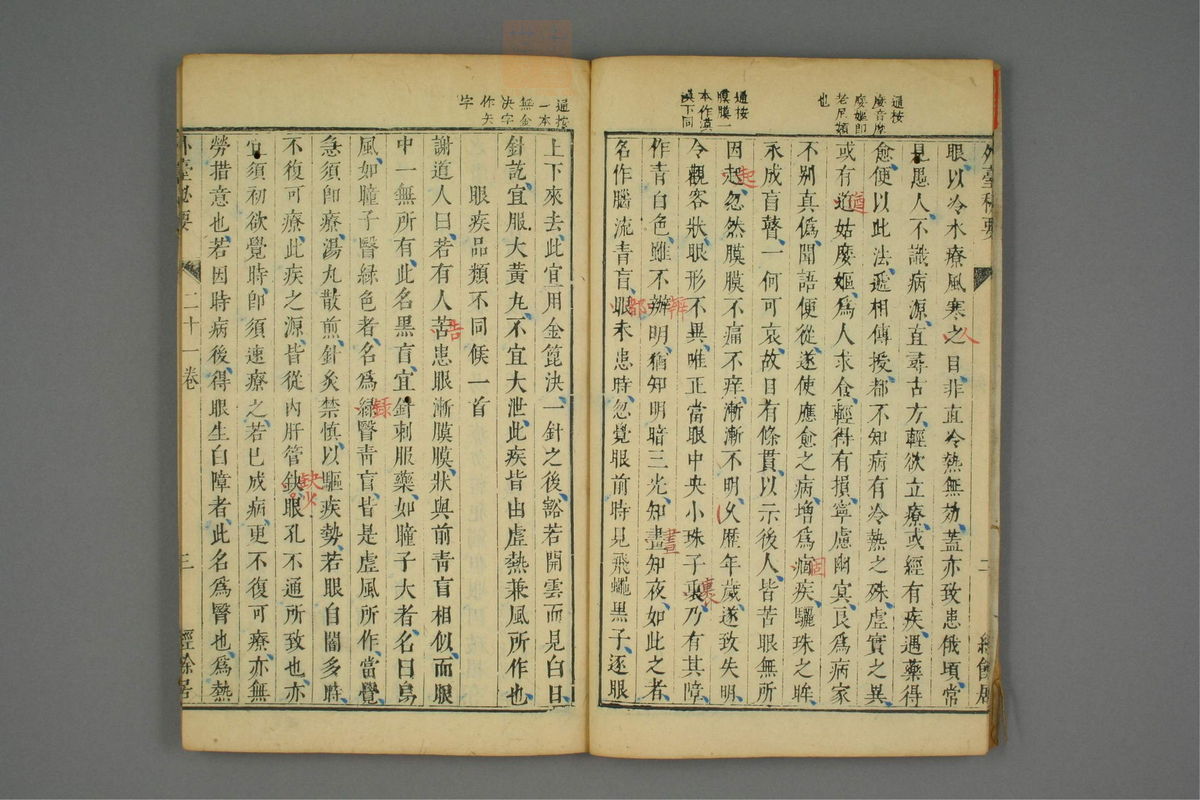 外臺秘要
二
經餘居
通按
䃺音摩
䃺嫗即
老尼類
也
通按
膜膜一
本作漠
漠下同
眼以冷水療風寒之目非直冷熱無効蓋亦致患俄頃常
見愚人不識病源直尋古方輕欲立療或經有疾遇藥得
愈便以此法遞相傳授都不知病有冷熱之殊虛實之異
或有道姑嫗為人求食輕得有損寧慮幽冥良為病家
不别真僞聞語便從遂使應愈之病增為痼疾驪珠之眸
永成盲瞽一何可哀故目有條貫以示後人皆苦眼無所
因起忽然膜膜不痛不痒漸漸不明久歷年歲遂致失明
令觀容狀眼形不異唯正當眼中央小珠子裏乃有其障
作青白色雖不辦明猶知明暗三光知晝知夜如此之者
名作腦流青盲眼未患時忽覺眼前時見飛蠅黑子逐眼
通按
一本
無金
决字
作矢
字
上下來去此宜用金箆決一針之後豁若開雲而見白日
針訖宜服大黃丸不宜大泄此疾皆由虛熱兼風所作也
眼疾品類不同候一首
謝道人曰若有人苦患眼漸膜膜狀與前青盲相似而眼
中一無所有此名黑盲宜針刺服藥如瞳子大者名曰烏
風如瞳子翳緑色者名為緑翳青盲皆是虛風所作當覺
急須即療湯丸散煎針灸禁慎以驅疾勢若眼自闇多時
不復可療此疾之源皆從內肝管缺眼孔不通所致也亦
宜須初欲覺時即須速療之若已成病更不復可療亦無
勞措意也若因時病後得眼生白障者此名為翳也為熱
外臺秘要
二十一卷
三
經餘居